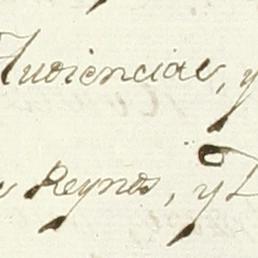 Audiencias, y
Reynos, y D